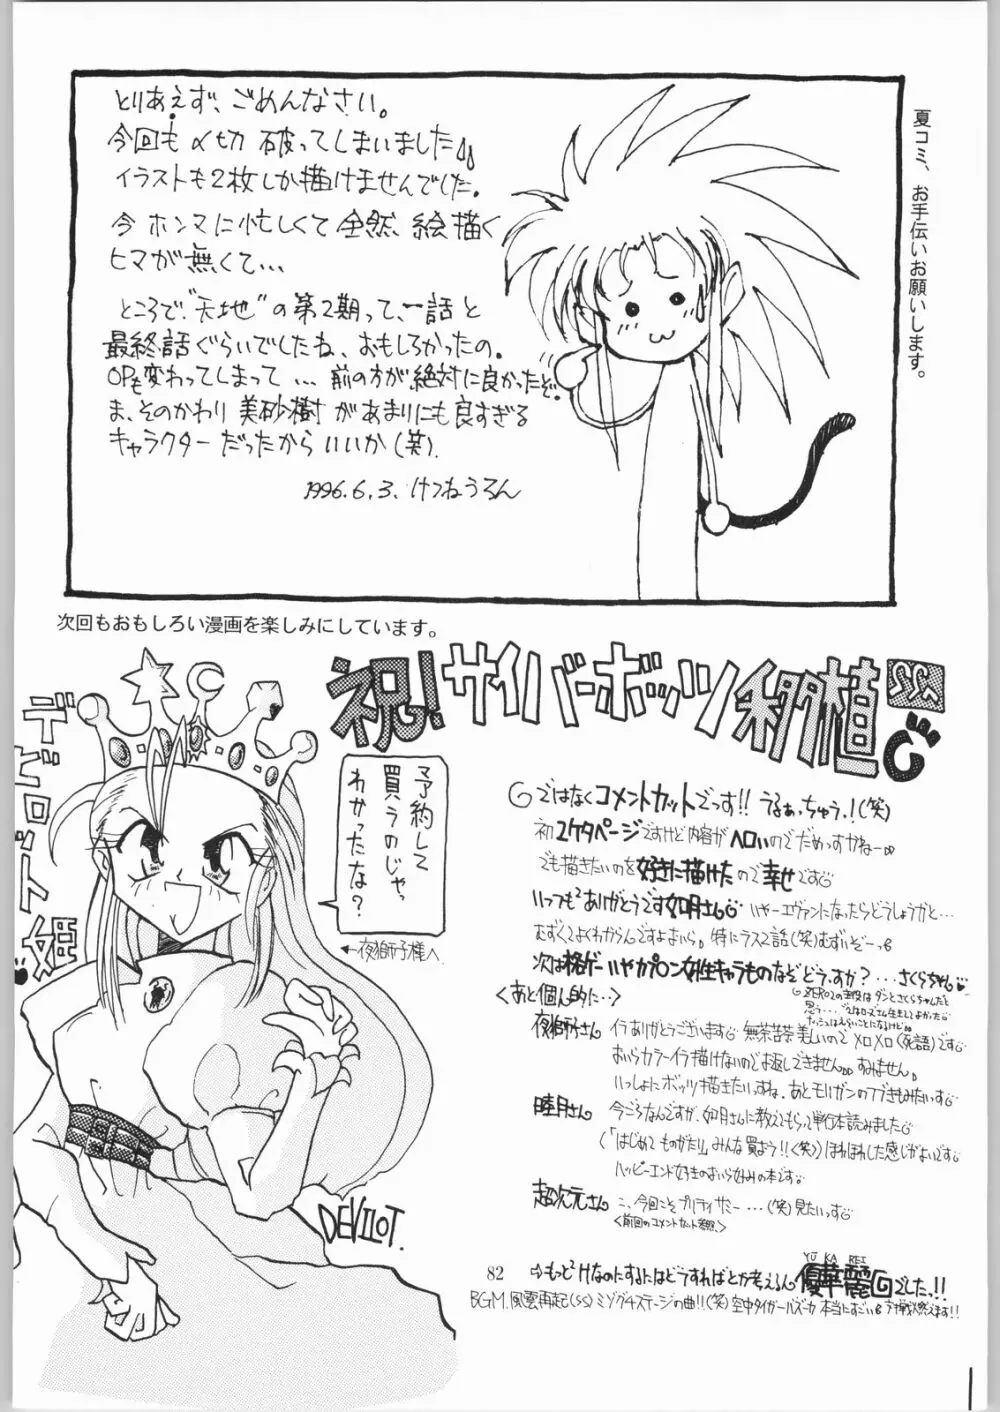 とりあえず、ごめんなさい。
今回も〆切 破ってしまいました
イラストも2枚しか描けませんでした。
今 ホンマに忙しくて 全然、絵描く
ヒマが無くて…
ところで"天地"の第2期って、一話と
最終話ぐらいでしたね、おもしろかったの。
OPも変わってしまって…前の方が絶対に良かったぞ。
ま、そのかわり 美砂樹があまりにも良すぎる
キャラクターだったから いいか(笑).
1996.6.3、けつねうろん
夏コミ、お手伝いお願いします。
次回もおもしろい漫画を楽しみにしています。
祝!サイバーボッツ移植
デビロット姫
予約して
買うのじゃっ
わかったな?
←夜獅子様へ
DEVILOT.
ではなくコメントカットでっす!! うるぁっちゅう!(笑)
初2ケタページですけど内容がヘロいのでだめっすかねー
でも描きたいのを好きに描けたので幸せです
いっつも²ありがとうです如月さん いやーエヴァンになったらどうしようかと…
むずくてよくわからんですよおいら。特にラスト2話(笑)むずいぞーっ
次は格ゲーいやカプコン女性キャラものなぞどうすか?…さくらちゃん
ZERO2の主役はダンとさくらちゃんだと
思う…
<あと個人的に…>
夜獅子さん イラありがとうございます 無茶苦茶美しいのでメロメロ(死語)です
おいらカラーイラ描けないのでお返しできません。すみません。
いっしょにボッツ描きたいっすね。あとモリガンの
睦月さん 今ごろなんですが、如月さんに教えてもらって単行本読みました
(「はじめてものがたり」みんな買よう!!<笑>)ほれぼれした感じがよいです
ハッピーエンド好きのおいら好みの本です
超次元さん こ、今回こそプリティサミー…(笑)見たいっす
<前回のコメントカット参照.>
82
⇨もっと²けなのにするにはどうすればとか考えるん
YŪ KA REI
優華麗
でしたっ!!
BGM.風雲再起(SS)ミヅグチステージの曲!!(笑)空中タイガールズーカ 本当にすごい 対戦燃えます!!